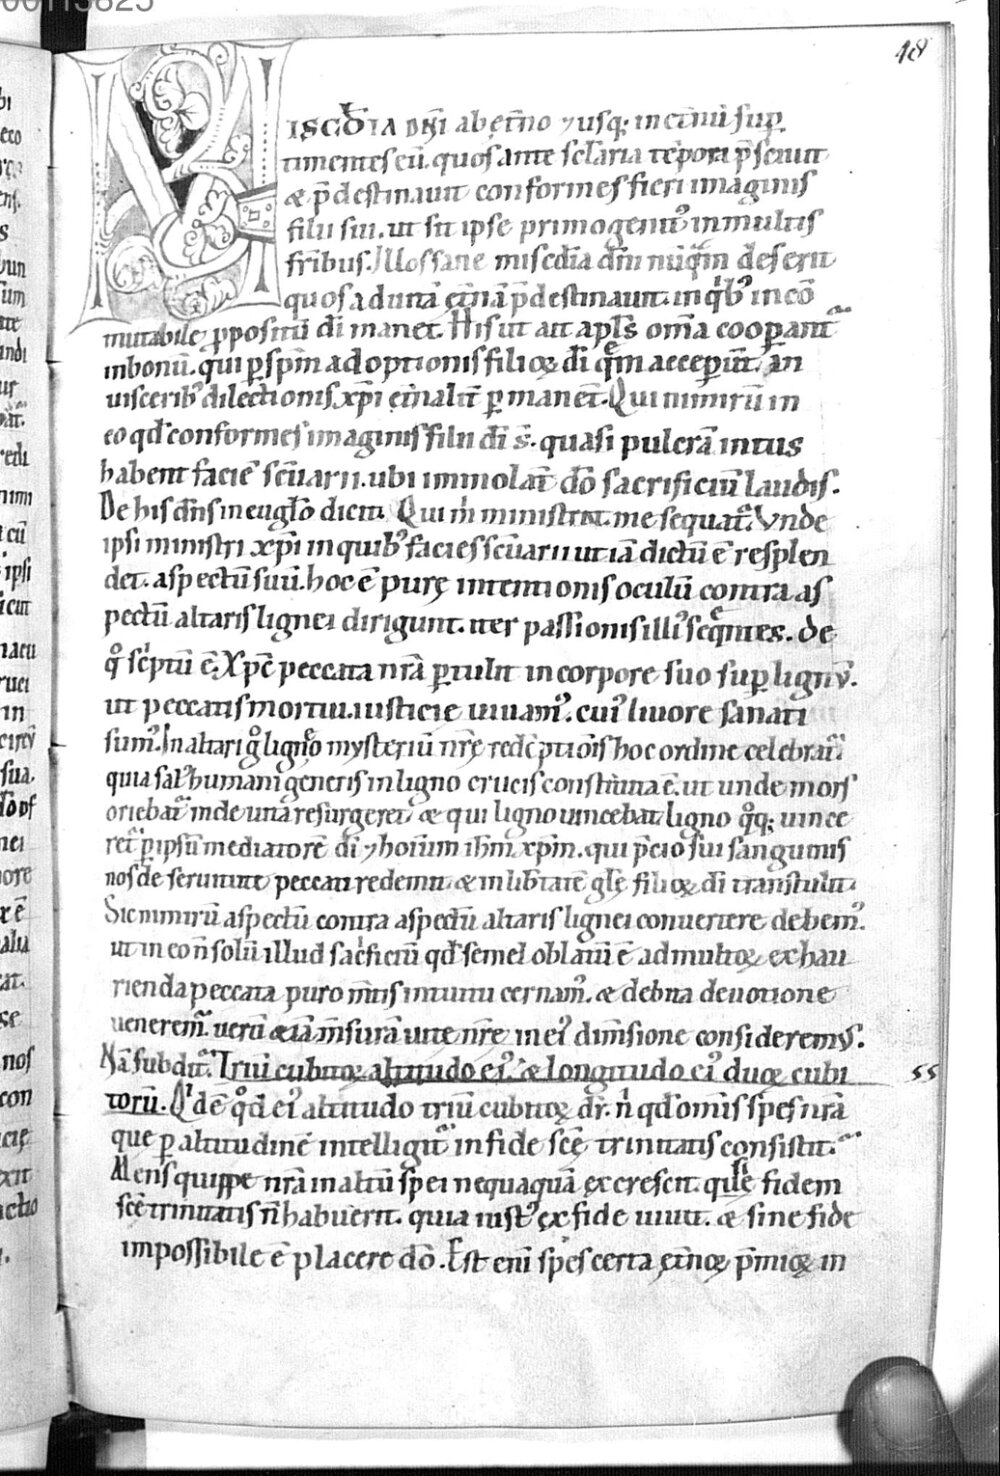 00113825
48
MISCD̄IA DN̄I ab ęt̄no ⁊ usq; in et̄nū sup̄
timentes eū. quos ante sclaria tēpora p̄sciuit
& p̄destinauit conformes fieri imaginis
filii sui. ut sit ipse primogenitꝰ in multis
fribus. Illos sane misc̄dia dn̄i nūq̄m deserit
quos ad uitā ęt̄nā p̄destinauit. in qͥbꝰ incō
mutabile ꝓpositū dī manet. His ut ait apl̄s om̄a cooꝑant᷑
in bonū. qui ꝑ sp̄m adoptionis filioꝝ dī quē acceper̄t. in
uisceribꝰ dilectionis xp̄i ęt̄nalit̄ ꝑmanet̄. Qui nimirū in
eo qd̄ conformes imaginis filii dī s̄. quasi pulcrā intus
habent faciē sc̄uarii. ubi immolāt dō sacrificiū laudis.
De his dn̄s in euglō dicit. Qui m̄ ministrat. me sequat᷑. Vnde
ipsi ministri xp̄i in quibꝰ facies sc̄uarii ut iā dictū ē resplen
det. aspectū suū. hoc ē purę intentionis oculū contra as
pectū altaris lignei dirigunt. iter passionis illiꝰ seq̄ntes. de
qͦ sc̄ptū ē. Xp̄c peccata nr̄a ꝑtulit in corpore suo suꝑ lignū.
ut peccatis mortui. iusticie uiuamꝰ. cuiꝰ liuore sanati
sumꝰ. In altari gͦ ligneo mysteriū nr̄ę redēptiōis hoc ordine celebrat᷑.
quia salꝰ humani generis in ligno crucis constituta ē. ut unde mors
oriebat᷑ inde uita resurgeret. & qui ligno uincebat ligno qͦq; uince
ret᷑ ꝑ ipsū mediatorē dī ⁊ hoīum ihm̄ xp̄m. qui p̄cio sui sanguinis
nos de seruitute peccati redemit. & in lib̄tatē glę̄ filioꝝ dī transtulit.
Sic nimirū aspectū contra aspectū altaris lignei conuertere debemꝰ.
ut in eo n̄ solū illud sac̄ficiū qd̄ semel oblatū ē ad multoꝝ exhau
rienda peccata puro m̄tis intuitu cernamꝰ. & debita deuotione
uenerem᷑. uerū & iā m̄surā uite nr̄ę in eiꝰ dim̄sione consideremꝰ.
Nā subdit᷑. Triū cubitoꝝ altitudo eiꝰ. & longitudo eiꝰ duoꝝ cubi
55
torū. Qͥd ē qͦd eiꝰ altitudo triū cubitoꝝ dr̄. n̄ qd̄ om̄is spes nr̄a
que ꝑ altitudinē intelligit᷑ in fide sc̄ę trinitatis consistit.
Mens quippe nr̄a in altū spei nequaquā excrescit. q̄ si fidem
sc̄ę trinitatis n̄ habuerit. quia iustꝰ ex fide uiuit. & sine fide
impossibile ē placere dō. Est enī spes certa ęt̄noꝝ p̄mioꝝ in